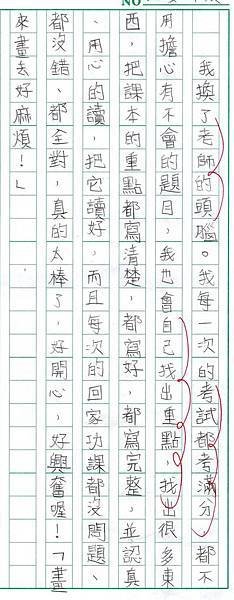 NO
我換了老師的頭腦。我每一次的考試都考滿分都不
用擔心有不會的題目，我也會自己找出重點，找出很多東
西，把課本的重點都寫清楚，都寫好，都寫完整，並認真
、用心的讀，把它讀好，而且每次的回家功課都沒問題、
都沒錯、都全對，真的太棒了，好開心，好興奮喔！「畫
來畫去好麻煩！」